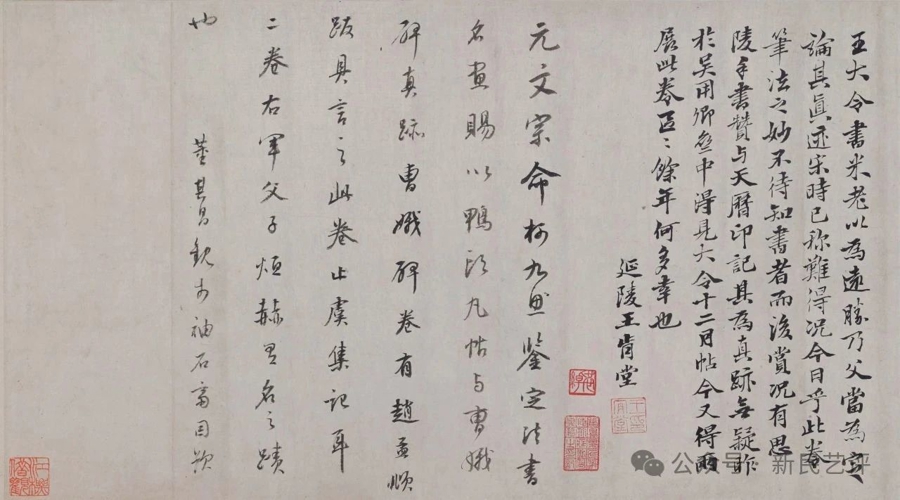 王大令書米老以為遠勝乃父當為定
論其眞迹宋時已称難得况今日乎此卷
筆法之妙不待知書者而後賞况有思
陵手書贊与天曆印記其為真跡無疑昨
於吴用卿中得見大令十二月帖今又得
展此卷區〻餘年何多幸也
延陵王肯堂
元文宗命柯九思鑒定法書
名畫賜以鴨頭丸帖与曹娥
碑真跡曹娥碑卷有趙孟頫
跋具言之此卷止虞集記耳
二卷右軍父子烜赫有名之蹟
也
董其昌觀於袖石齋因題
公众号 · 新民艺评